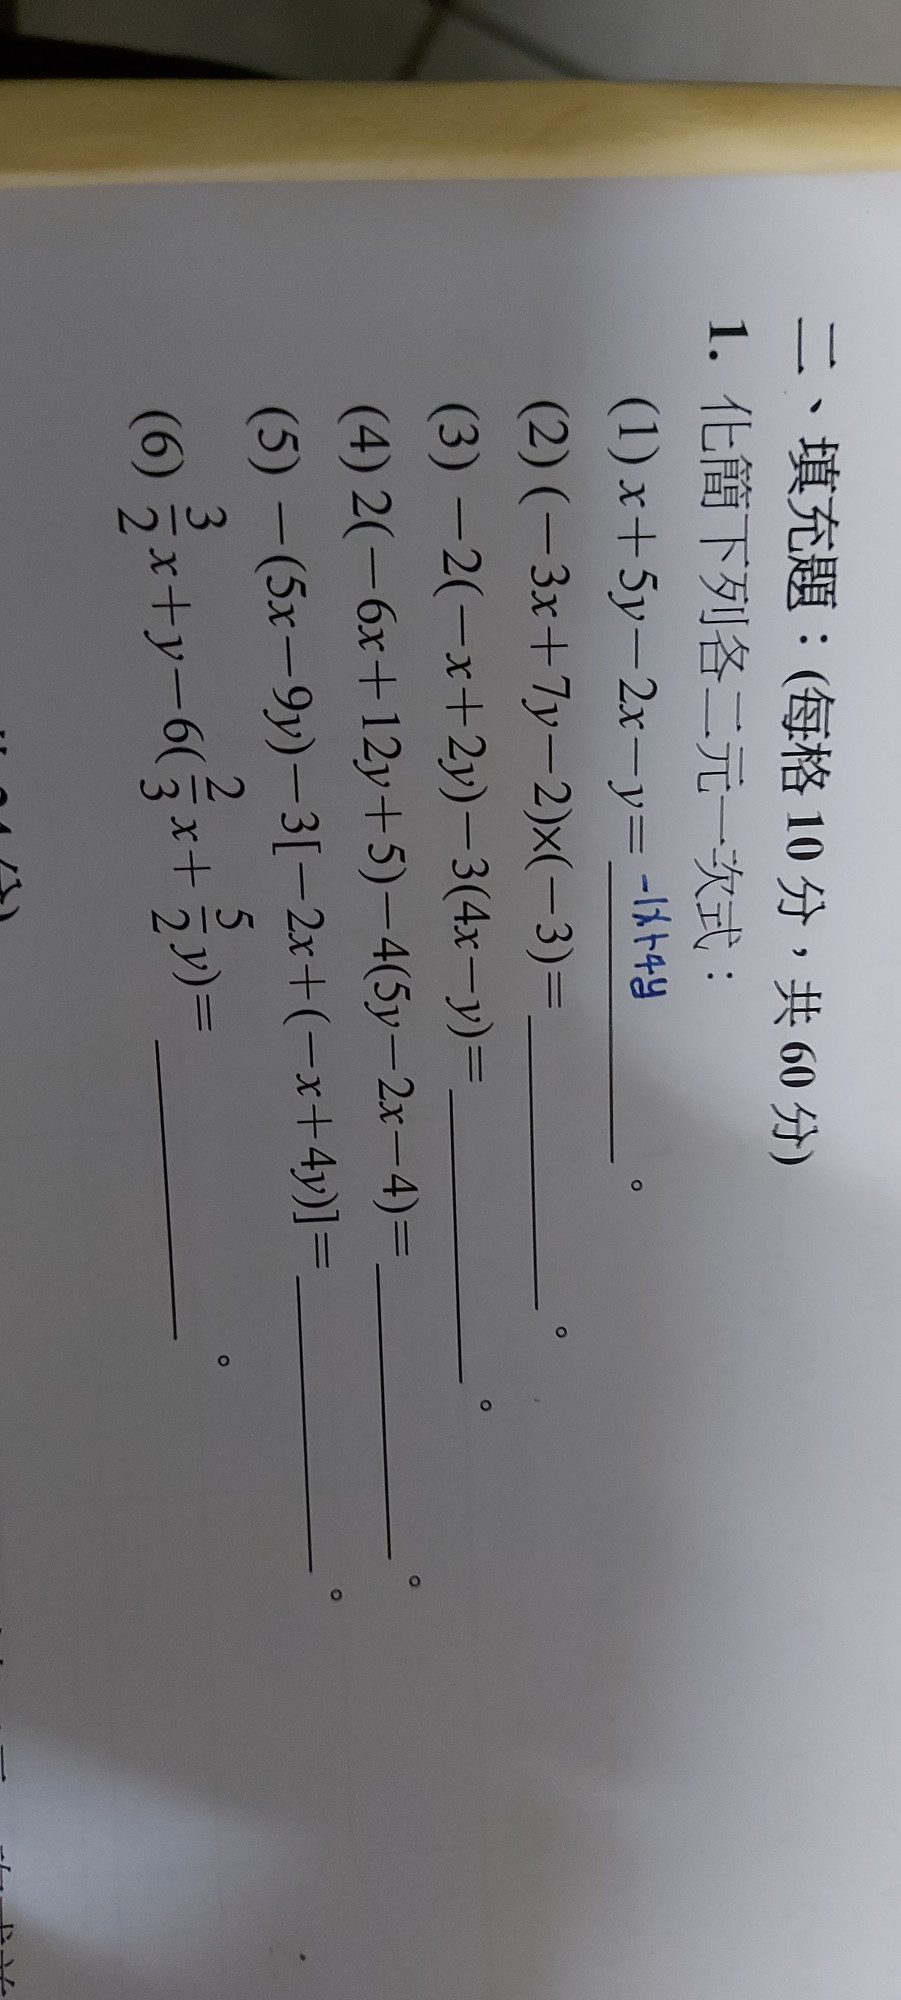 二、填充題：(每格 10 分，共 60 分)
1. 化簡下列各二元一次式：
(1) x＋5y－2x－y＝ -1x+4y 。
(2) (－3x＋7y－2)×(－3)＝ 。
(3) －2(－x＋2y)－3(4x－y)＝ 。
(4) 2(－6x＋12y＋5)－4(5y－2x－4)＝ 。
(5) －(5x－9y)－3[－2x＋(－x＋4y)]＝ 。
(6) 3/2 x＋y－6(2/3 x＋5/2 y)＝ 。